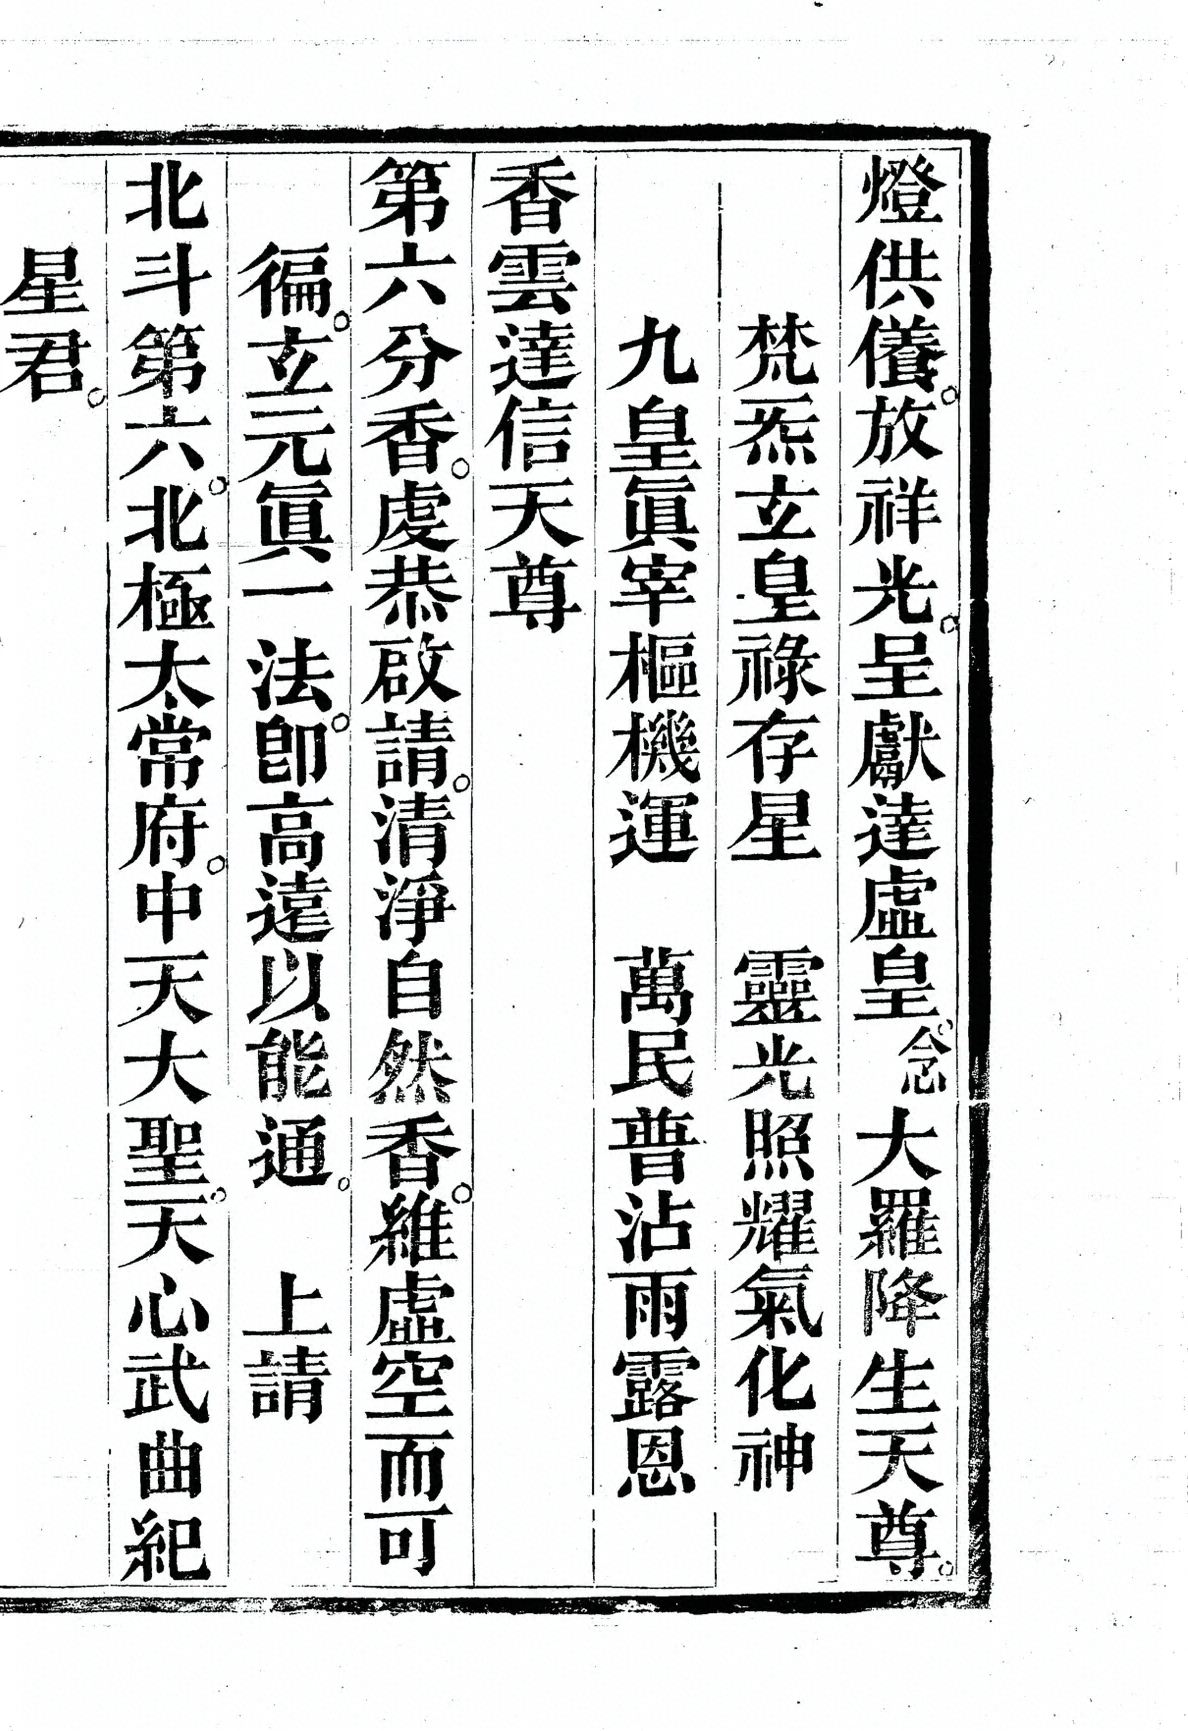 燈供養。放祥光。呈獻達虛皇。念大羅降生天尊。
梵炁玄皇祿存星　靈光照耀氣化神
九皇眞宰樞機運　萬民普沾雨露恩
香雲達信天尊
第六分香。虔恭啟請。清淨自然香。維虛空而可
徧。玄元眞一法。卽高遠以能通。　上請
北斗第六。北極太常府。中天大聖。天心武曲紀
星君。